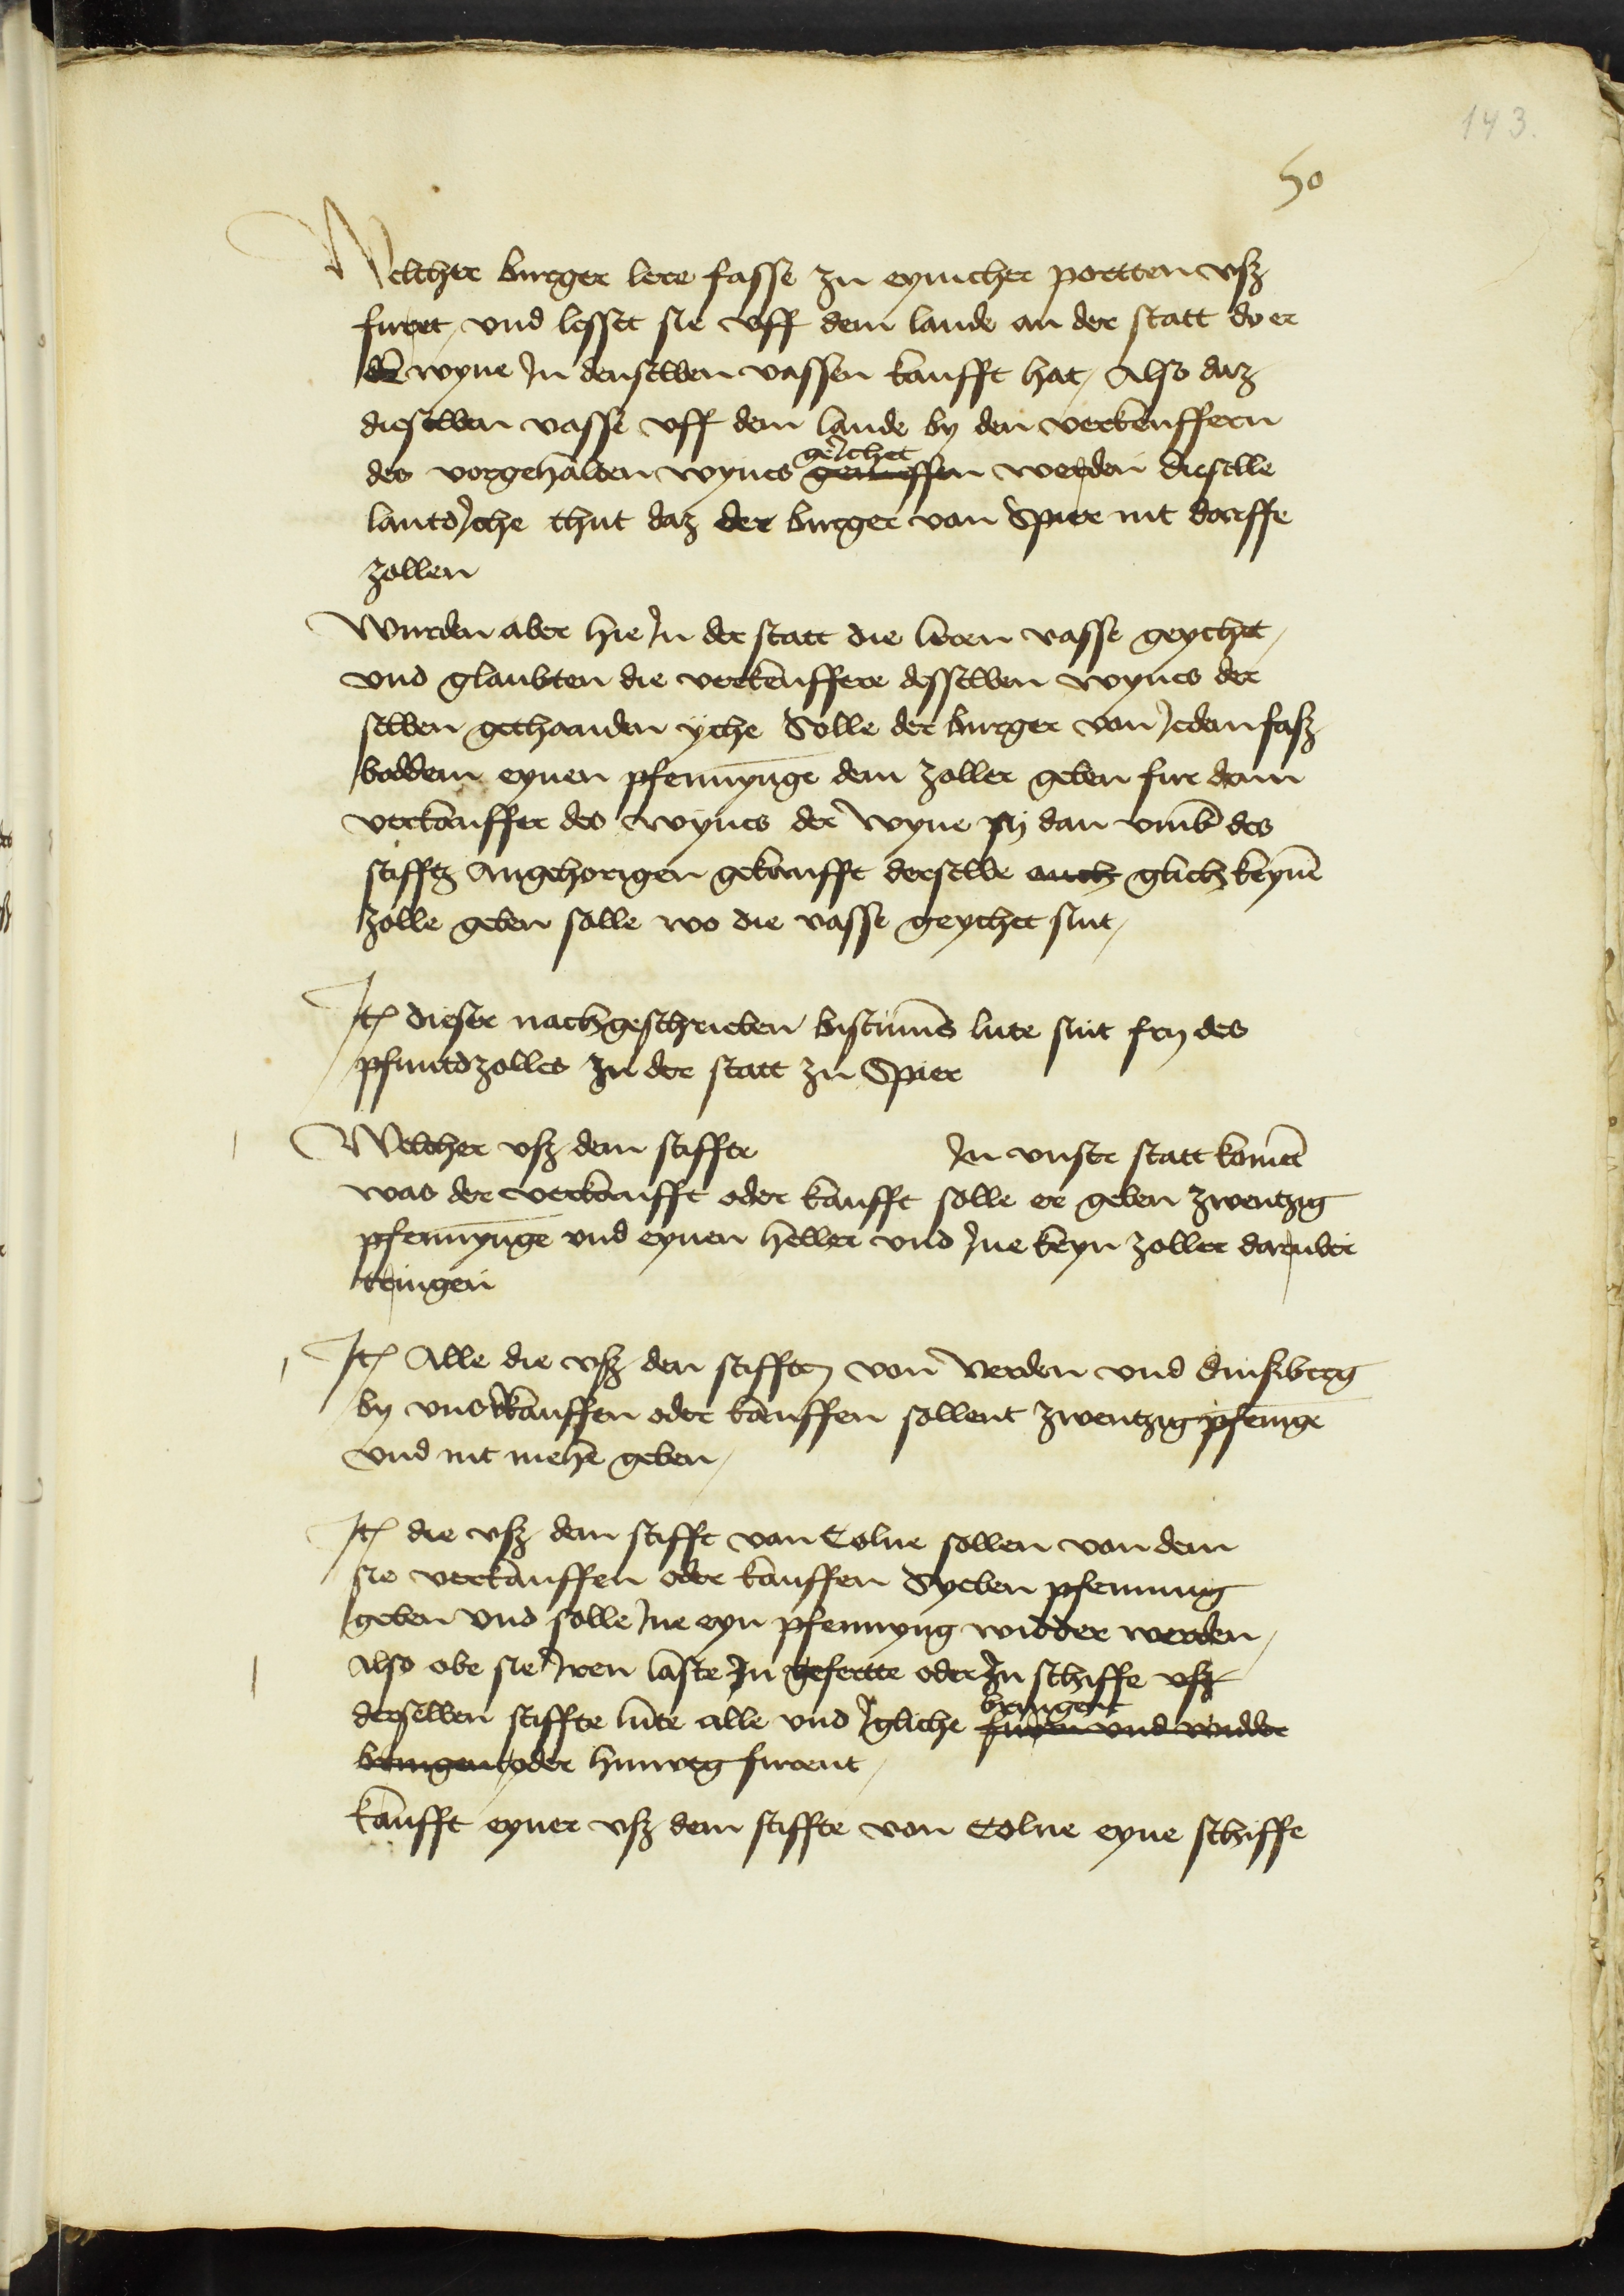 143.
50
Welcher burger lere fasse zu eynicher portten vsz
furet, vnd lesset sie vff dem lande an der statt do er
den wyne Jn denselben vassen kaufft hat, Also daz
dieselben vasse vff dem lande by den verkeuffern
geJchet
des vorgehalden wynes gemessen werden dieselbe
lantdJche thut daz der burger von Spier nit dorffe
zollen
Wurden aber hie Jn der statt die leren vasse geychet,
vnd glaubten die verkeuffere desselben wynes der
selben gethanden yche Solle der burger von Jedem fasz
boddem eynen pfennynge dem zoller geben fur dem
verkauffer des wynes der wyne sy dan vmb des
stiffts Angehorigen gekaufft derselbe auch glich keynen
zolle geben solle wo die vasse geychet sint,
Jt dieser nachgeschrieben bistums lute sint fry des
pfuntdzolles zu der statt zu Spier
Welcher vsz dem stiffte Jn vnser statt komet
was der verkaufft oder kaufft solle er geben zwentzig
pfennynge vnd eynen heller vnd Jne keyn zoller daruber
tringen
Jt Alle die vsz den stifften von Verden vnd Duisberg
by vns verkauffen oder kauffen sollent zwentzig pfenige
vnd nit mehe geben,
Jt die vsz dem stifft von Colne sollen von dem
sie verkauffen oder kauffen Syeben pfenning
geben vnd solle Jne eyn pfennyng widder werden,
Also obe sie Jren laste Jn gefertte oder Jn schiffe vsz
bringent
derselben stiffte lute alle vnd Jgliche furen vnd widder
bringent oder hinweg furent,
Kaufft eyner vsz dem stiffte von Colne eyne schiffe